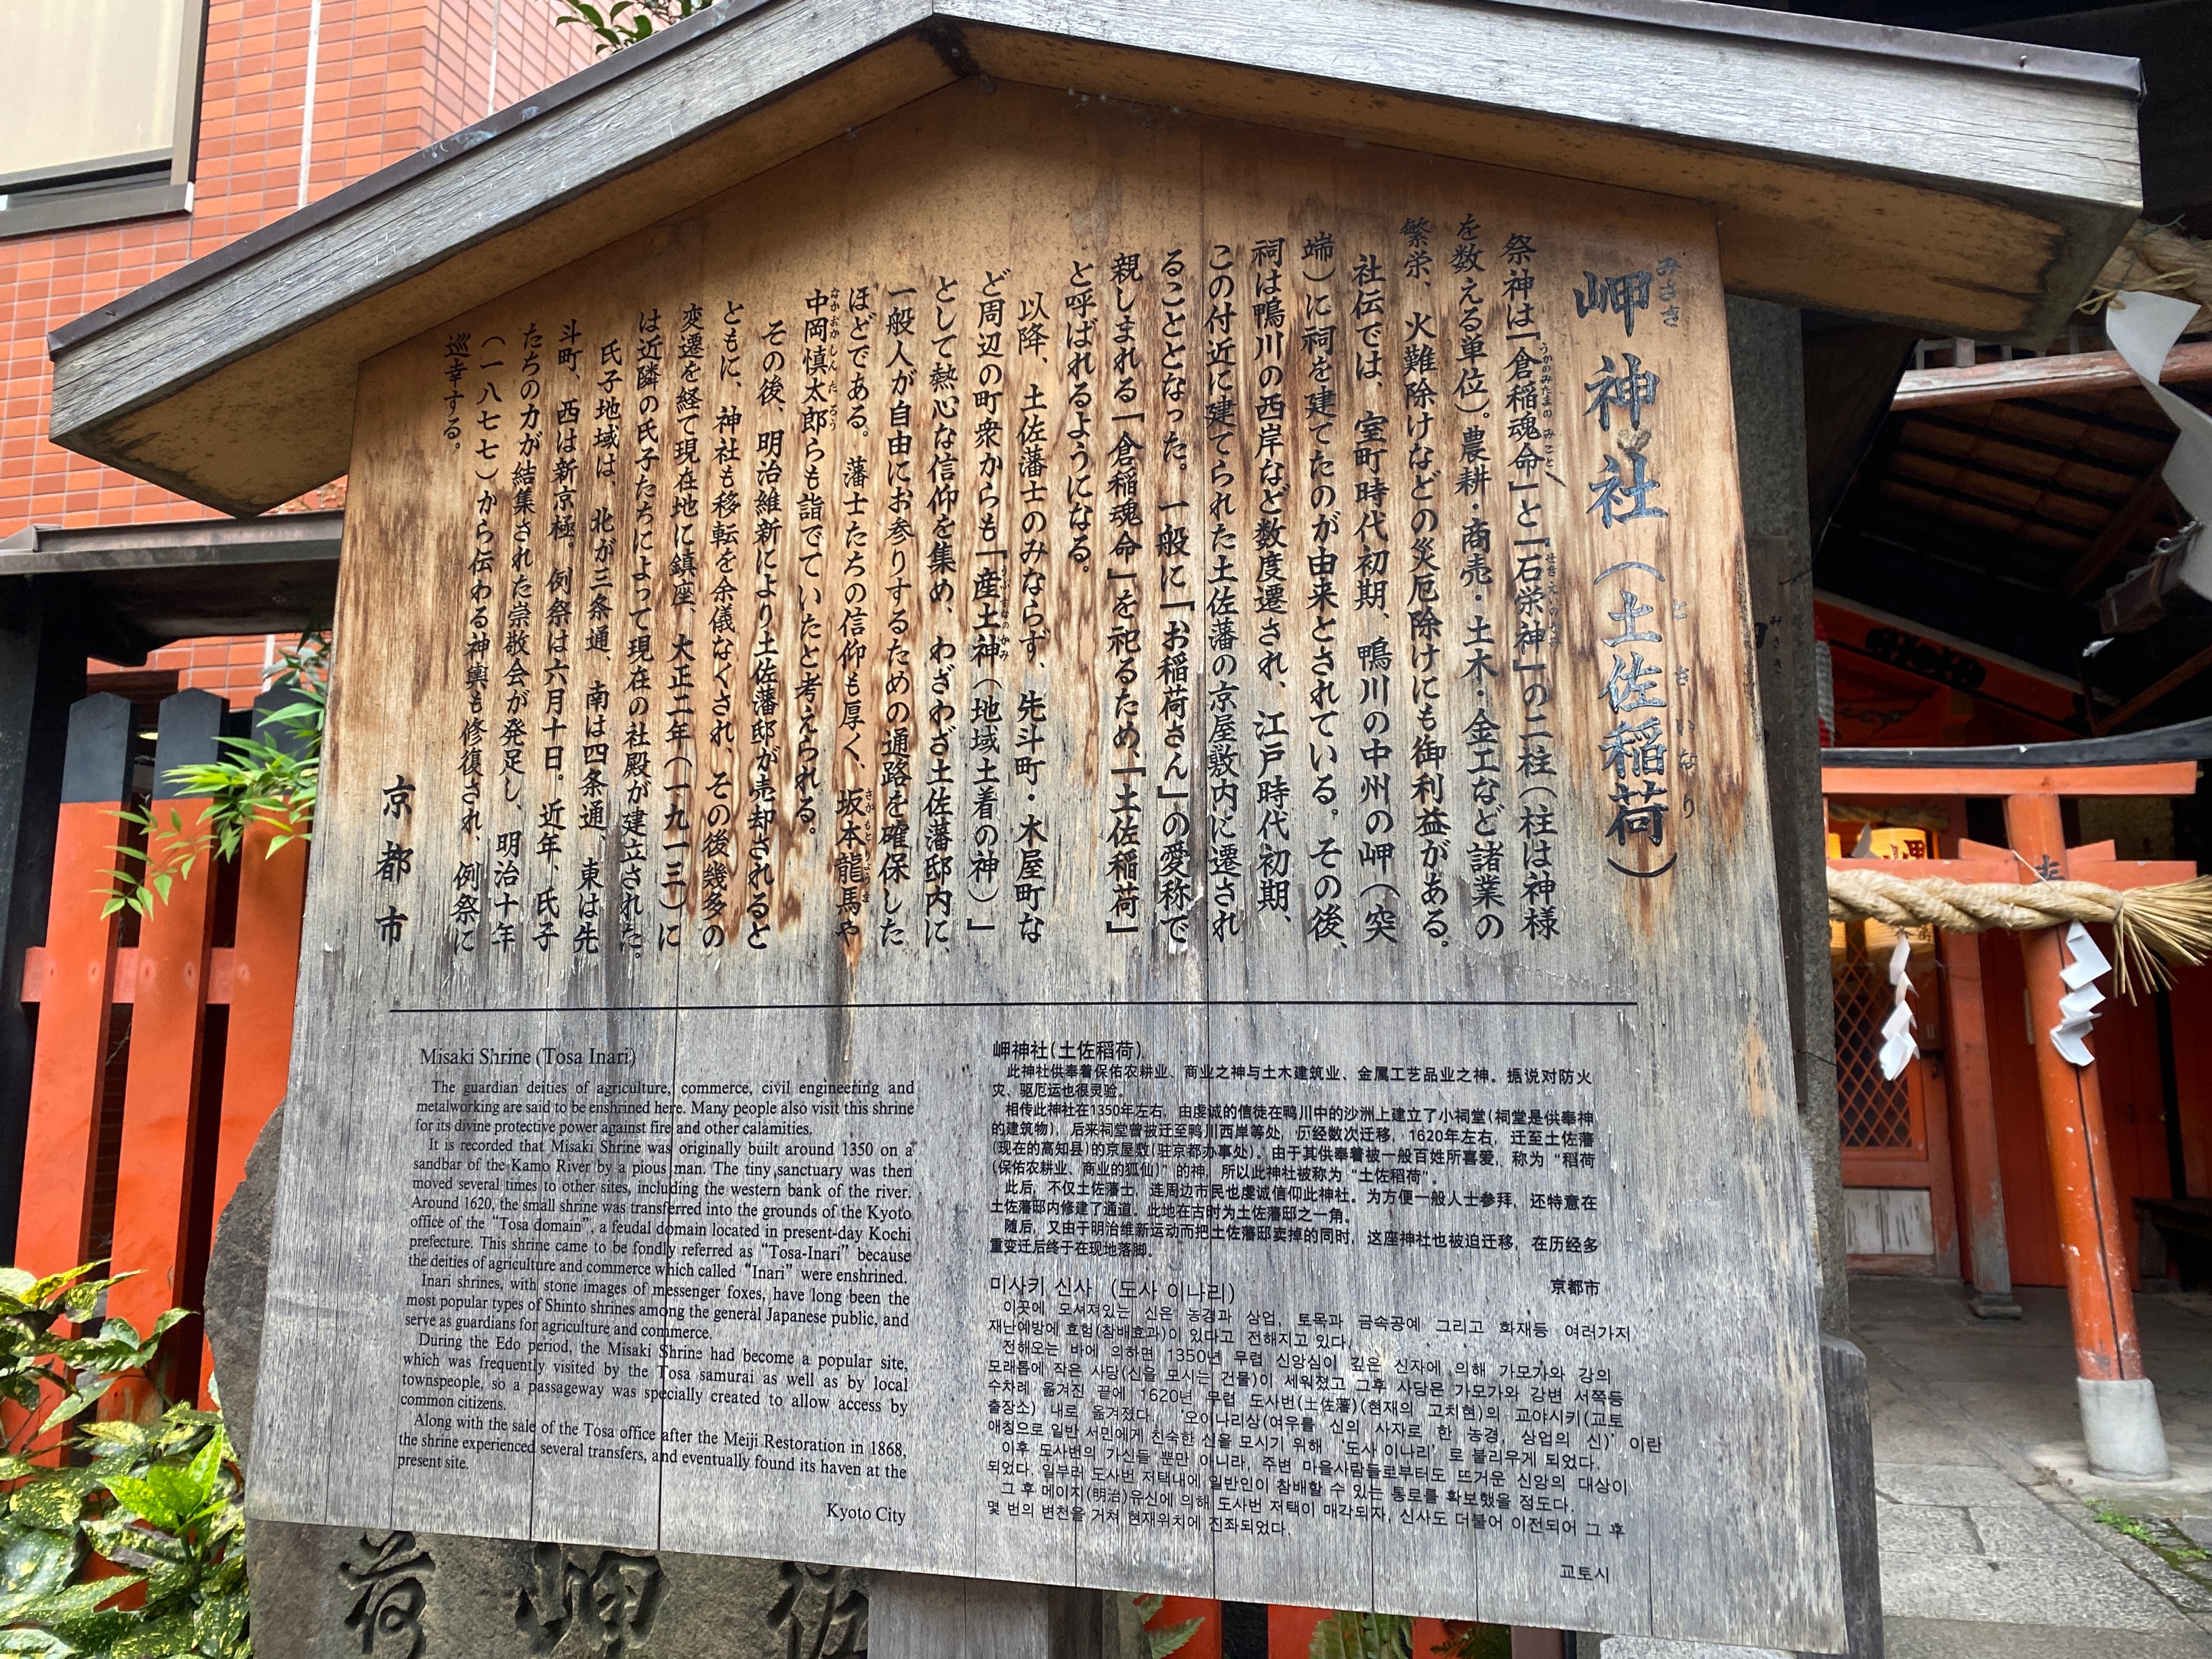 岬神社(土佐稲荷)
祭神は「倉稲魂命」と「石栄神」の二柱(柱は神様
を数える単位)。農耕・商売・土木・金工など諸業の
繁栄、火難除けなどの災厄除けにも御利益がある。
社伝では、室町時代初期、鴨川の中州の岬(突
端)に祠を建てたのが由来とされている。その後、
祠は鴨川の西岸など数度遷され、江戸時代初期、
この付近に建てられた土佐藩の京屋敷内に遷され
ることとなった。一般に「お稲荷さん」の愛称で
親しまれる「倉稲魂命」を祀るため、「土佐稲荷」
と呼ばれるようになる。
以降、土佐藩士のみならず、先斗町・木屋町な
ど周辺の町衆からも「産土神(地域土着の神)」
として熱心な信仰を集め、わざわざ土佐藩邸内に、
一般人が自由にお参りするための通路を確保した
ほどである。藩士たちの信仰も厚く、坂本龍馬や
中岡慎太郎らも詣でていたと考えられる。
その後、明治維新により土佐藩邸が売却されると
ともに、神社も移転を余儀なくされ、その後幾多の
変遷を経て現在地に鎮座、大正二年(一九一三)に
は近隣の氏子たちによって現在の社殿が建立された。
氏子地域は、北が三条通、南は四条通、東は先
斗町、西は新京極。例祭は六月十日。近年、氏子
たちの力が結集された崇敬会が発足し、明治十年
(一八七七)から伝わる神輿も修復され、例祭に
巡幸する。
京都市
Misaki Shrine (Tosa Inari)
The guardian deities of agriculture, commerce, civil engineering and
metalworking are said to be enshrined here. Many people also visit this shrine
for its divine protective power against fire and other calamities.
It is recorded that Misaki Shrine was originally built around 1350 on a
sandbar of the Kamo River by a pious man. The tiny sanctuary was then
moved several times to other sites, including the western bank of the river.
Around 1620, the small shrine was transferred into the grounds of the Kyoto
office of the "Tosa domain", a feudal domain located in present-day Kochi
prefecture. This shrine came to be fondly referred as "Tosa-Inari" because
the deities of agriculture and commerce which called "Inari" were enshrined.
Inari shrines, with stone images of messenger foxes, have long been the
most popular types of Shinto shrines among the general Japanese public, and
serve as guardians for agriculture and commerce.
During the Edo period, the Misaki Shrine had become a popular site,
which was frequently visited by the Tosa samurai as well as by local
townspeople, so a passageway was specially created to allow access by
common citizens.
Along with the sale of the Tosa office after the Meiji Restoration in 1868,
the shrine experienced several transfers, and eventually found its haven at the
present site.
Kyoto City
岬神社(土佐稻荷)
此神社供奉着保佑农耕业、商业之神与土木建筑业、金属工艺品业之神。据说对防火
灾、驱厄运也很灵验。
相传此神社在1350年左右，由虔诚的信徒在鸭川中的沙洲上建立了小祠堂(祠堂是供奉神
的建筑物)，后来祠堂曾被迁至鸭川西岸等处，历经数次迁移，1620年左右，迁至土佐藩
(现在的高知县)的京屋敷(驻京都办事处)。由于其供奉着被一般百姓所喜爱，称为“稻荷
(保佑农耕业、商业的狐仙)”的神，所以此神社被称为“土佐稻荷”。
此后，不仅土佐藩士，连周边市民也虔诚信仰此神社。为方便一般人士参拜，还特意在
土佐藩邸内修建了通道。此地在古时为土佐藩邸之一角。
随后，又由于明治维新运动而把土佐藩邸卖掉的同时，这座神社也被迫迁移，在历经多
重变迁后终于在现地落脚。
京都市
미사키 신사 (도사 이나리)
이곳에 모셔져있는 신은 농경과 상업, 토목과 금속공예 그리고 화재등 여러가지
재난예방에 효험(참배효과)이 있다고 전해지고 있다.
전해오는 바에 의하면 1350년 무렵 신앙심이 깊은 신자에 의해 가모가와 강의
모래톱에 작은 사당(신을 모시는 건물)이 세워졌고 그후 사당은 가모가와 강변 서쪽등
수차례 옮겨진 끝에 1620년 무렵 도사번(土佐藩)(현재의 고치현)의 교야시키(교토
출장소) 내로 옮겨졌다. '오이나리상(여우를 신의 사자로 한 농경, 상업의 신)' 이란
애칭으로 일반 서민에게 친숙한 신을 모시기 위해 '도사 이나리' 로 불리우게 되었다.
이후 도사번의 가신들 뿐만 아니라, 주변 마을사람들로부터도 뜨거운 신앙의 대상이
되었다. 일부러 도사번 저택내에 일반인이 참배할 수 있는 통로를 확보했을 정도다.
그 후 메이지(明治)유신에 의해 도사번 저택이 매각되자, 신사도 더불어 이전되어 그 후
몇 번의 변천을 거쳐 현재위치에 진좌되었다.
교토시
荷 岬 佐